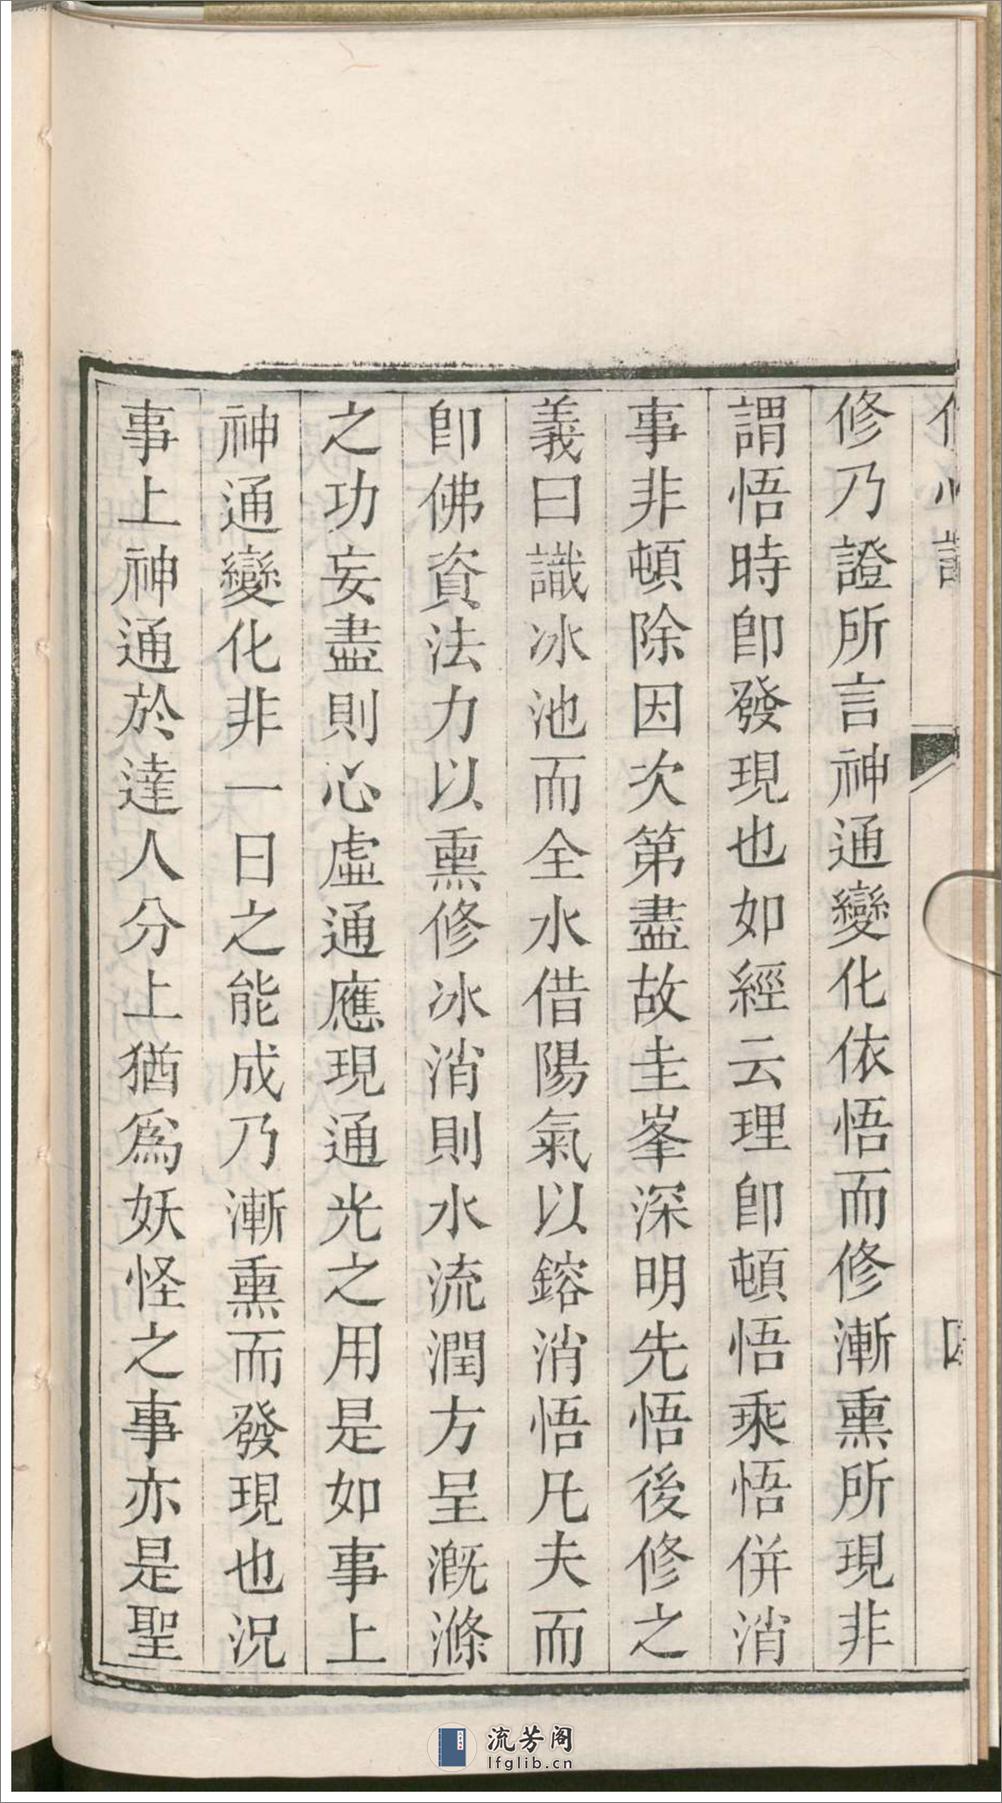 修乃證所言神通變化依悟而修漸熏所現非
謂悟時卽發現也如經云理卽頓悟乘悟併消
事非頓除因次第盡故圭峯深明先悟後修之
義曰識冰池而全水借陽氣以鎔消悟凡夫而
卽佛資法力以熏修冰消則水流潤方呈漑滌
之功妄盡則心虛通應現通光之用是如事上
神通變化非一日之能成乃漸熏而發現也况
事上神通於達人分上猶爲妖怪之事亦是聖
流芳阁
lfglib.cn